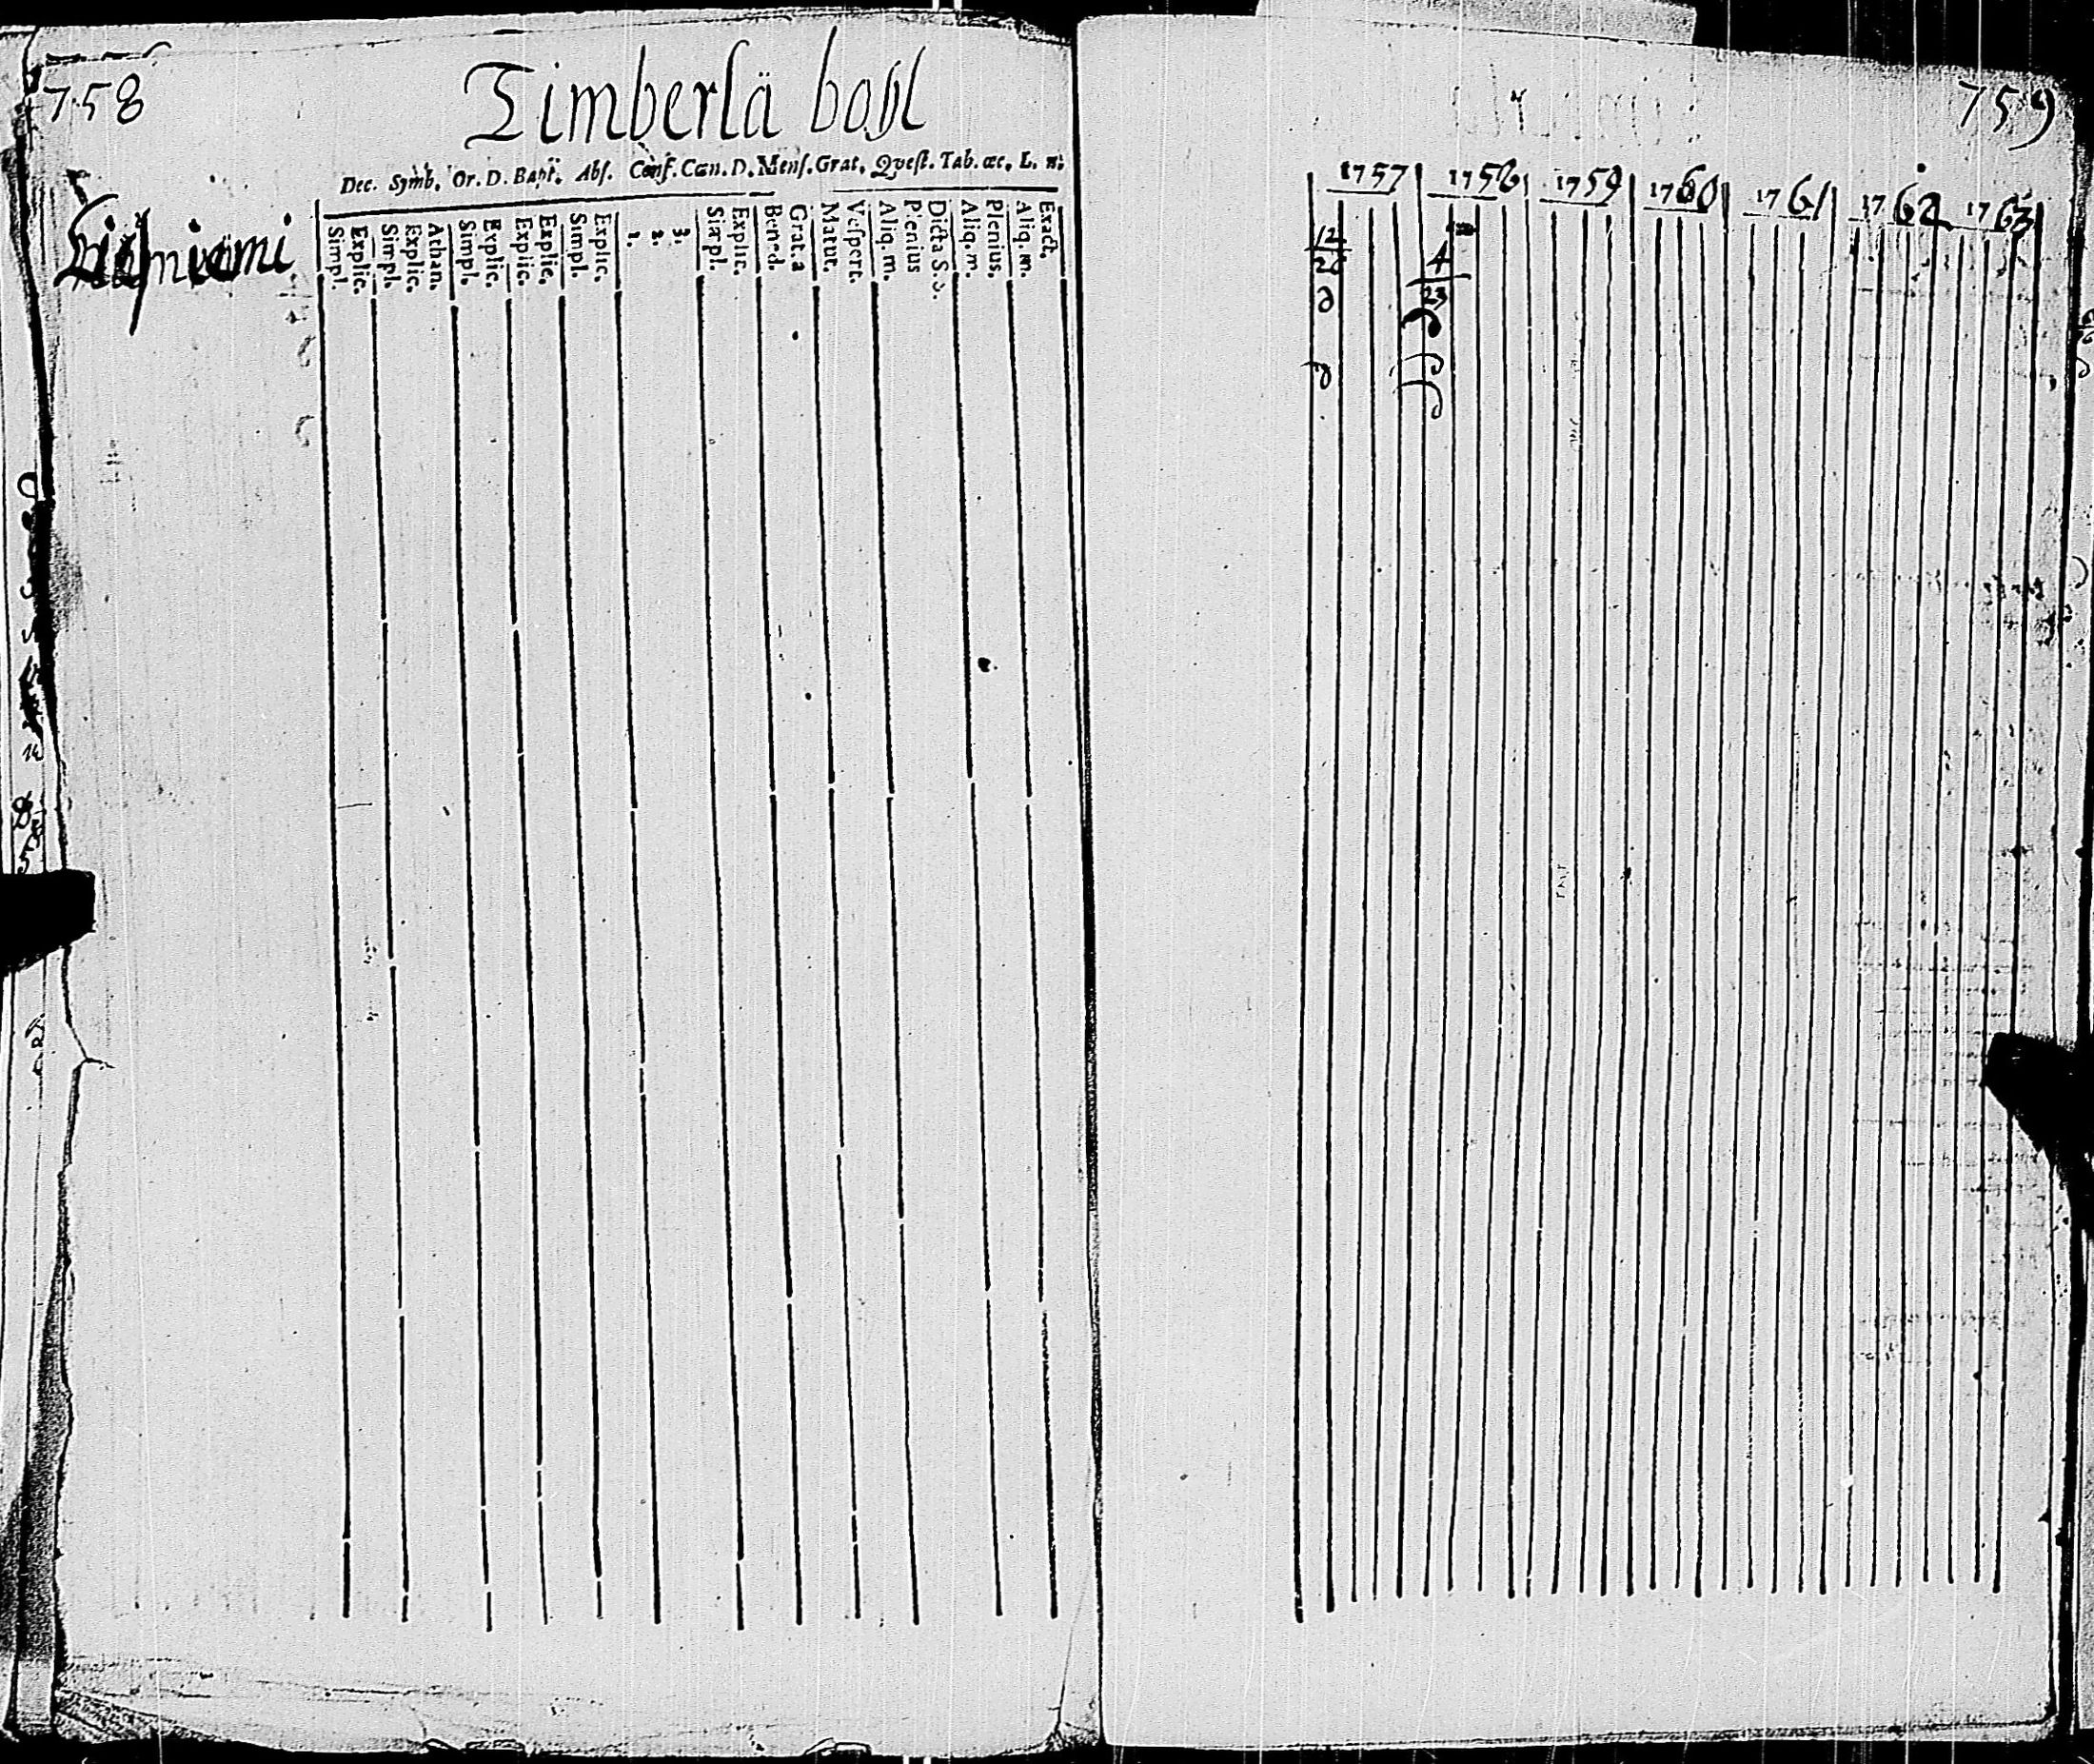 758
Timberlä boҩl
Dec. Symb. Or. D. Bapt. Abſ. Conf. Cœn. D. Menſ. Grat. Qveſt. Tab. œc. L. n.
Simpl.
Explic.
Simpl.
Explic.
Athan.
Simpl.
Explic.
Explic.
Explic.
Simpl.
Explic.
1.
2.
3.
Simpl.
Explic.
Bened.
Grat. a
Matut.
Veſpert.
Aliq. m.
Plenius
Dicta S. s.
Aliq. m.
Plenius.
Aliq. m.
Exact.
759
1757 1758 1759 1760 1761 1762 1763
12
26
4
23